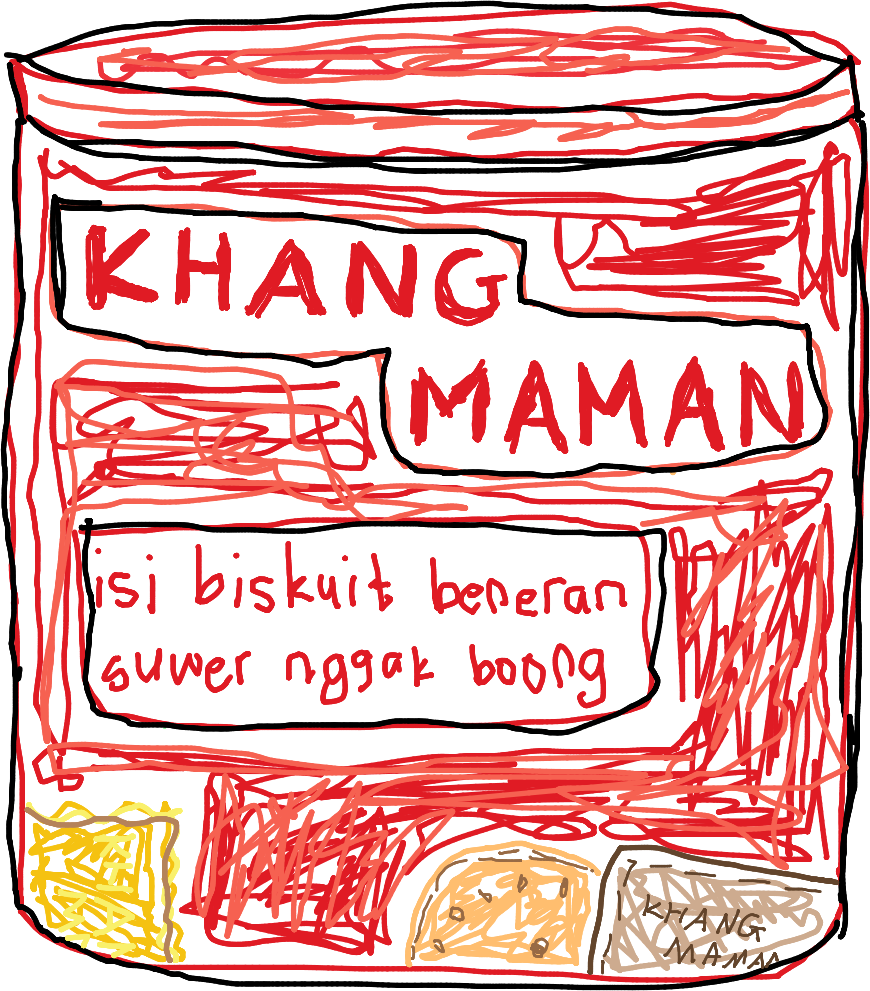 KHANG
MAMAN
isi biskuit beneran
suwer nggak boong
KHANG
MAMAN